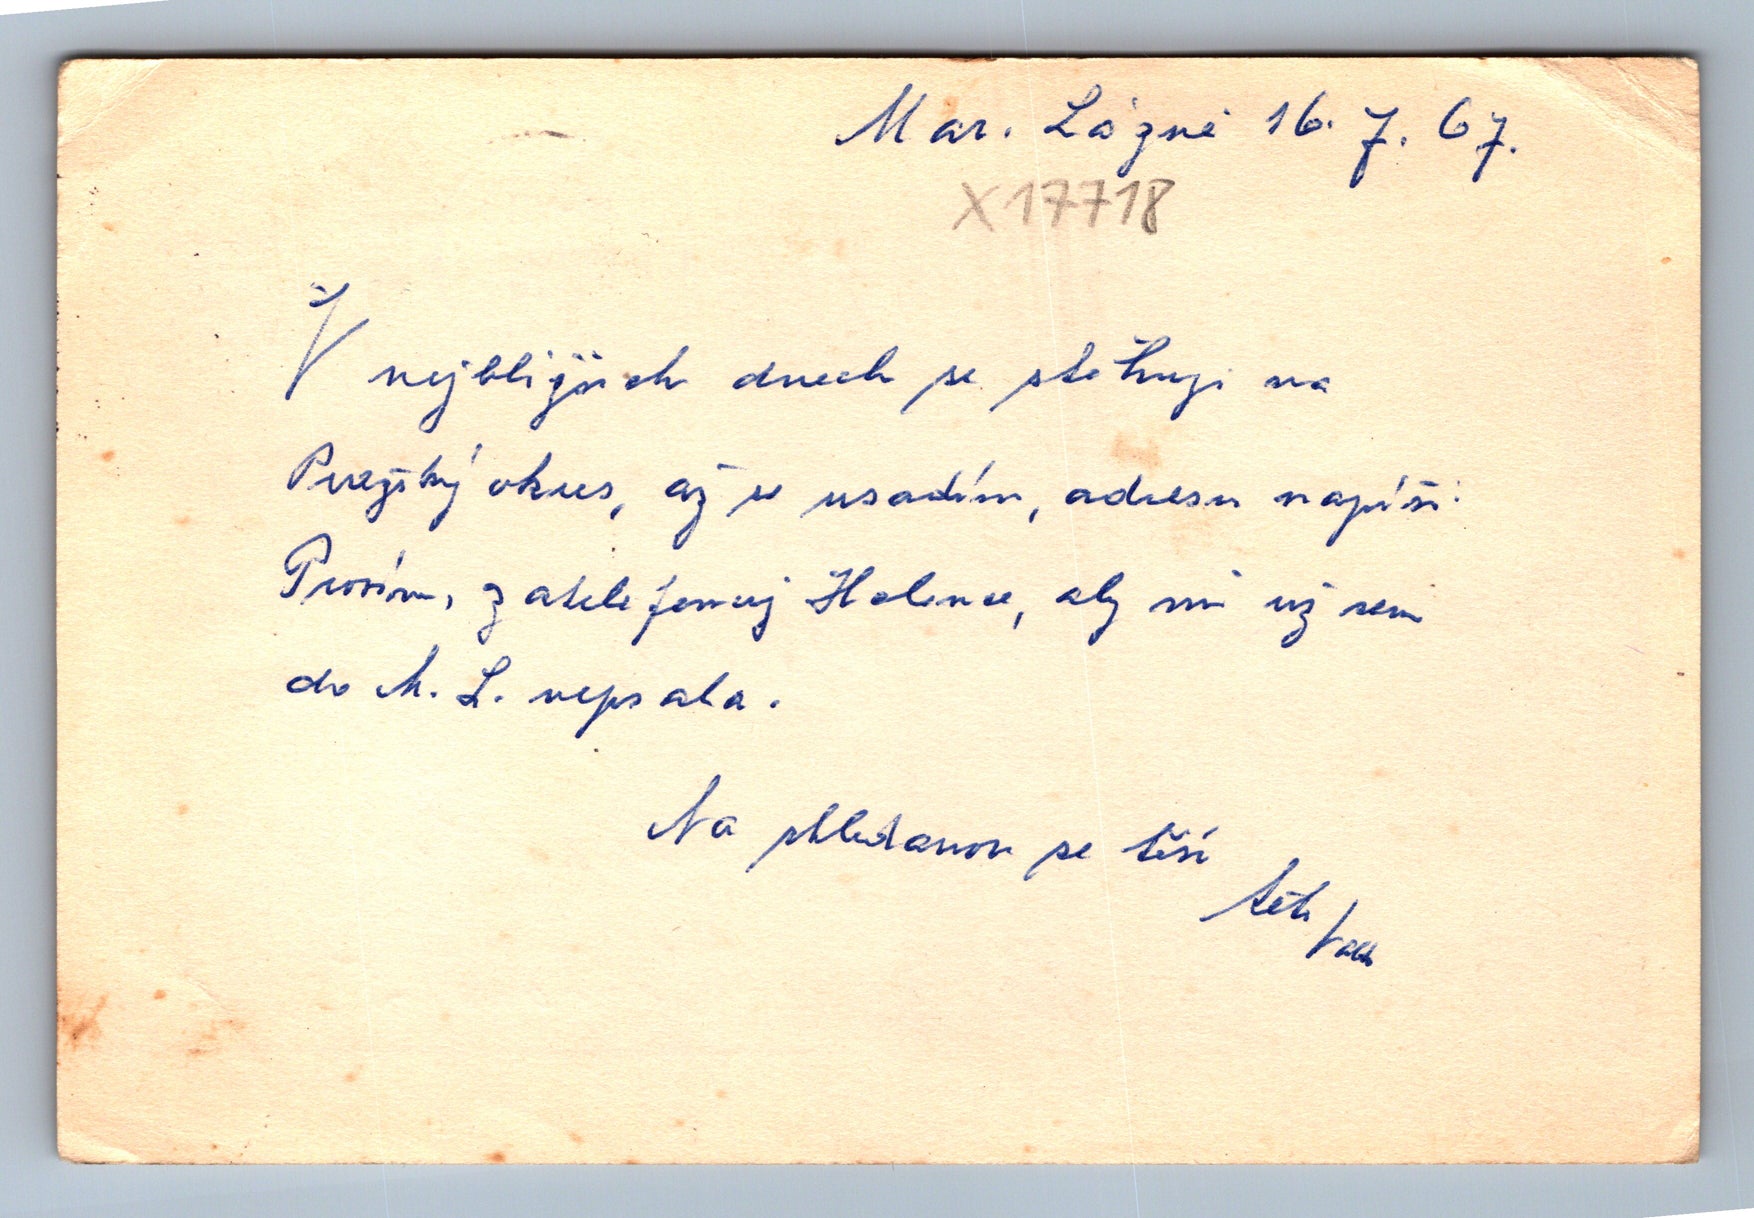 Mar. Lázně 16. 7. 67.
X17718
V nejbližších dnech se stěhuji na
Pražský okres, až se usadím, adresu napíši.
Prosím, zatelefonuj Halence, aby mi už sem
do M. L. nepsala.
Na shledanou se těší
teta